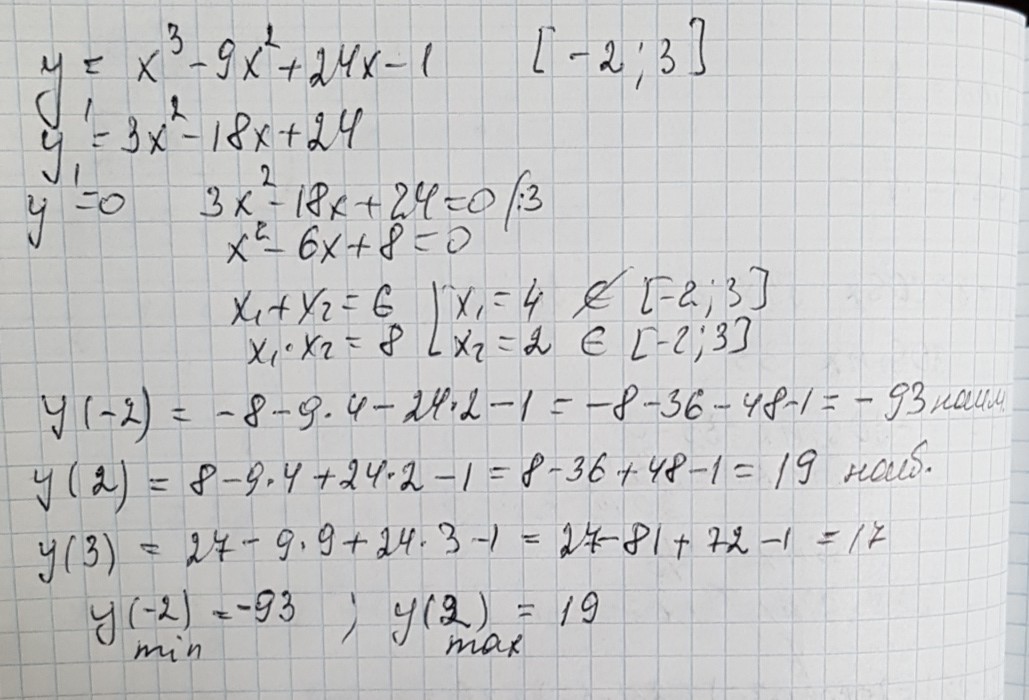 y = x³ - 9x² + 24x - 1 [-2; 3]
y' = 3x² - 18x + 24
y' = 0 3x² - 18x + 24 = 0 /:3
x² - 6x + 8 = 0
x₁ + x₂ = 6 [x₁ = 4 ∉ [-2; 3]
x₁·x₂ = 8 [x₂ = 2 ∈ [-2; 3]
y(-2) = -8 - 9·4 - 24·2 - 1 = -8 - 36 - 48 - 1 = -93 наим.
y(2) = 8 - 9·4 + 24·2 - 1 = 8 - 36 + 48 - 1 = 19 наиб.
y(3) = 27 - 9·9 + 24·3 - 1 = 27 - 81 + 72 - 1 = 17
y(-2) = -93 ; y(2) = 19
min max